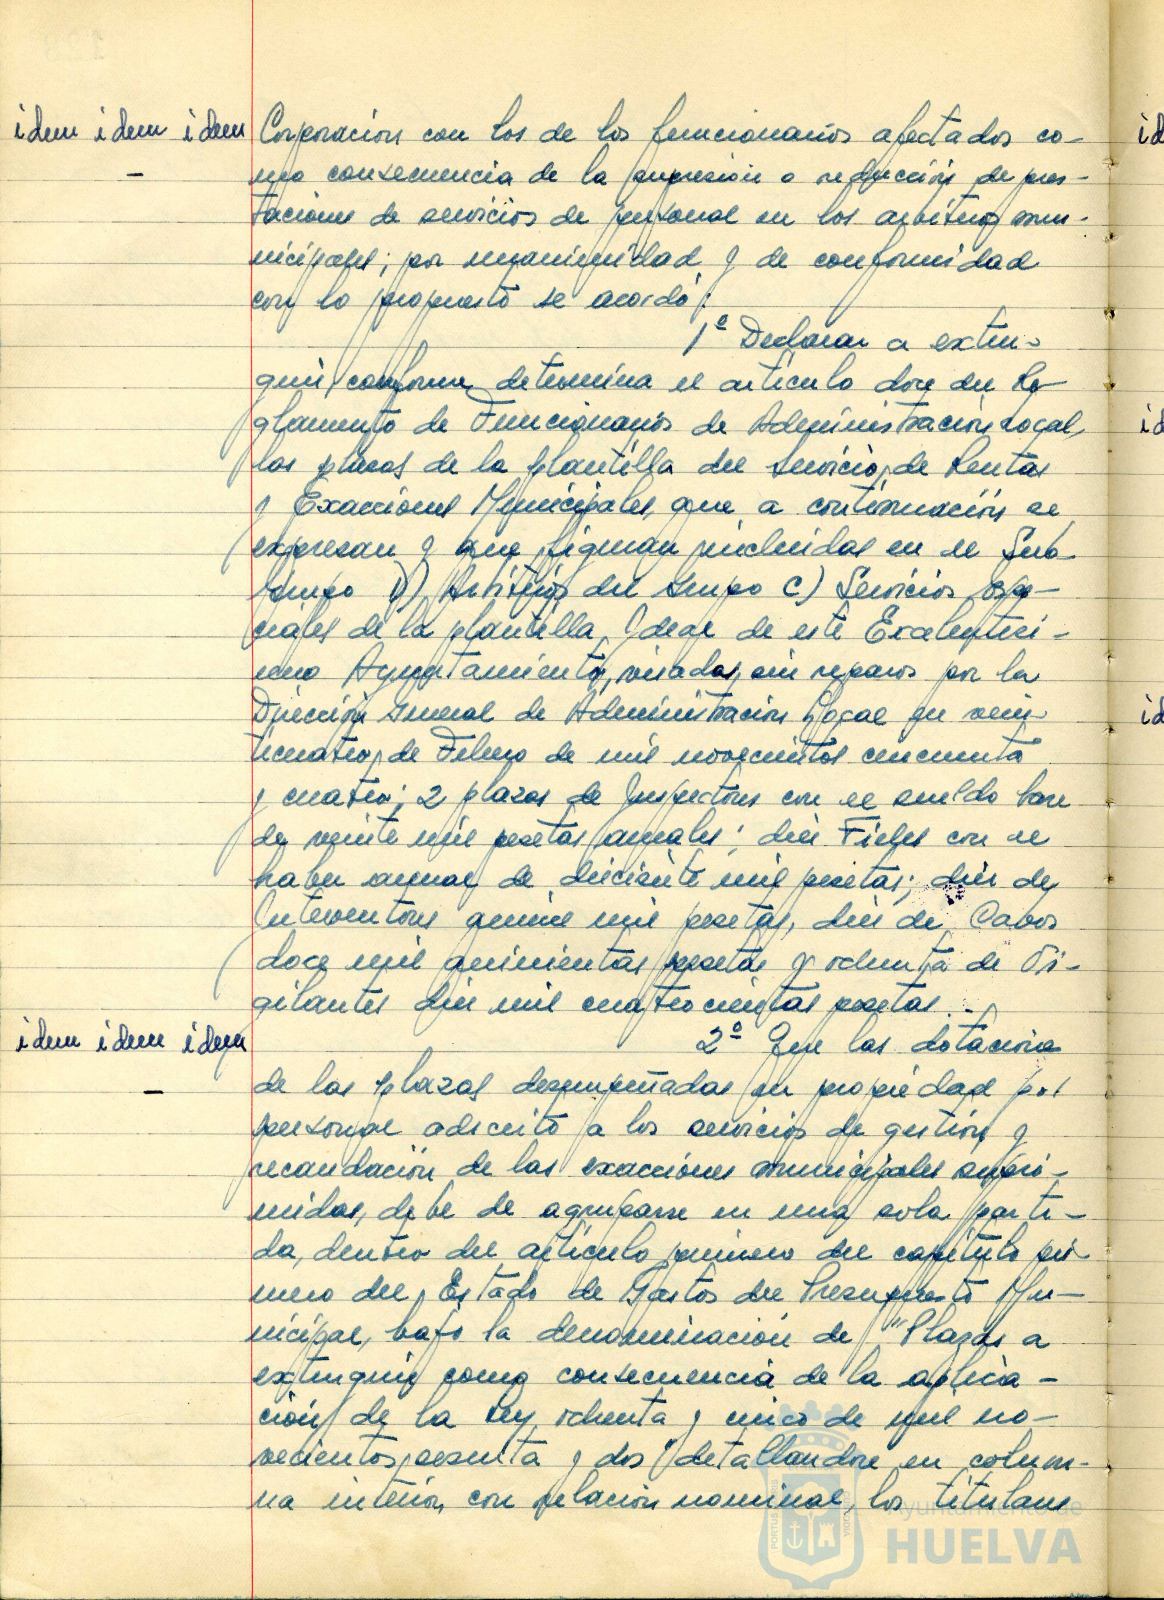 idem idem idem Corporación con los de los funcionarios afectados co-
- mo consecuencia de la supresión o reducción de pres-
taciones de servicios de personal en los arbitrios mu-
nicipales; por unanimidad y de conformidad
con lo propuesto se acordó:
1º Declarar a extin-
guir, conforme determina el artículo doce del Re-
glamento de Funcionarios de Administración Local,
las plazas de la plantilla del Servicio de Rentas
y Exacciones Municipales, que a continuación se
expresan y que figuran incluidas en el Sub-
Grupo D) Arbitrios del Grupo C) Servicios espe-
ciales de la plantilla, Ideal de este Excelentísi-
mo Ayuntamiento, visadas sin reparos por la
Dirección General de Administración Local en vein-
ticuatro de Febrero de mil novecientos cincuenta
y cuatro; 2 plazas de Inspectores con el sueldo base
de veinte mil pesetas anuales; diez Fieles con el
haber anual de diecisiete mil pesetas; diez de
Interventores quince mil pesetas, diez de Cabos
doce mil quinientas pesetas y ochenta de Vi-
gilantes diez mil cuatrocientas pesetas.
idem idem idem 2º Que las dotaciones
- de las plazas desempeñadas en propiedad por
personal adscrito a los servicios de gestión y
recaudación de las exacciones municipales supri-
midas, debe de agruparse en una sola parti-
da, dentro del artículo primero del capítulo pri-
mero del Estado de Gastos del Presupuesto Mu-
nicipal, bajo la denominación de "Plazas a
extinguir como consecuencia de la aplica-
ción de la Ley ochenta y cinco de mil no-
vecientos sesenta y dos" detallandose en colum-
na interior, con relación nominal, los titulares
Ayuntamiento de
HUELVA
PORTUS